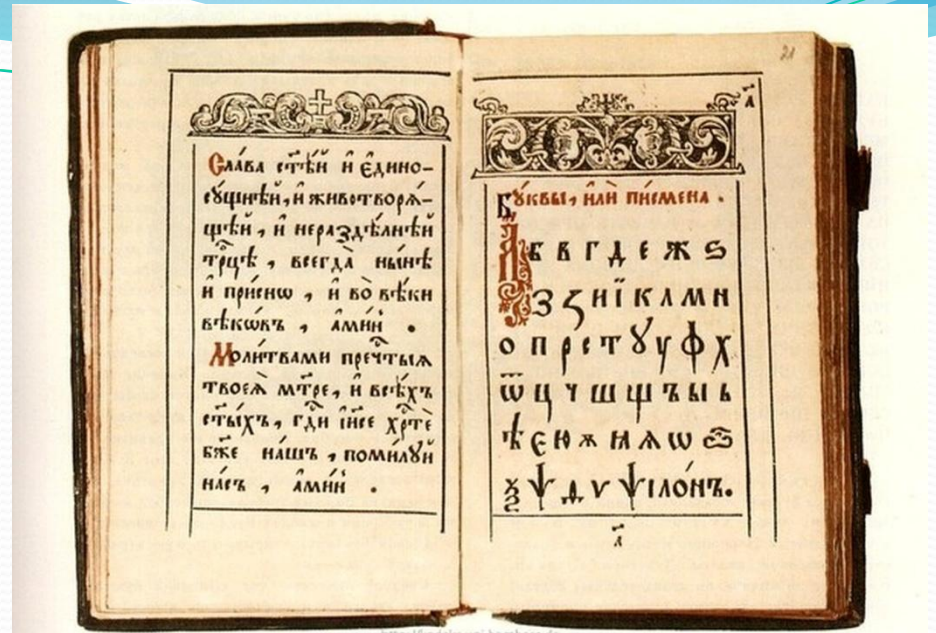 Сла́ва ст҃ѣ́й и҆ є҆дино-
сꙋ́щнѣй, и҆ животворѧ́-
щѣй, и҆ нераздѣ́лнѣй
трⷪ҇цѣ, всегда̀ ны́нѣ
и҆ при́снѡ, и҆ во̀ вѣ́ки
вѣкѡ́въ, а҆ми́нь.
Моли́твами преⷱ҇тыѧ
твоеѧ̀ мт҃ре, и҆ всѣ́хъ
ст҃ы́хъ, гдⷭ҇и і҆и҃се хрⷭ҇тѐ
бж҃е на́шъ, поми́лꙋй
на́съ, а҆ми́нь.
21
а҃
Бꙋ́квы, и҆лѝ пи́смена.
А Б В Г Д Е Ж Ѕ
З И Ї К Л М Н
О П Р С Т Ꙋ Ф Х
Ѿ Ц Ч Ш Щ Ъ Ы Ь
Ѣ Є Ю Ѫ Ѧ Ѡ
Ѯ Ѱ Ѵ Ѱїло́нъ.
а҃